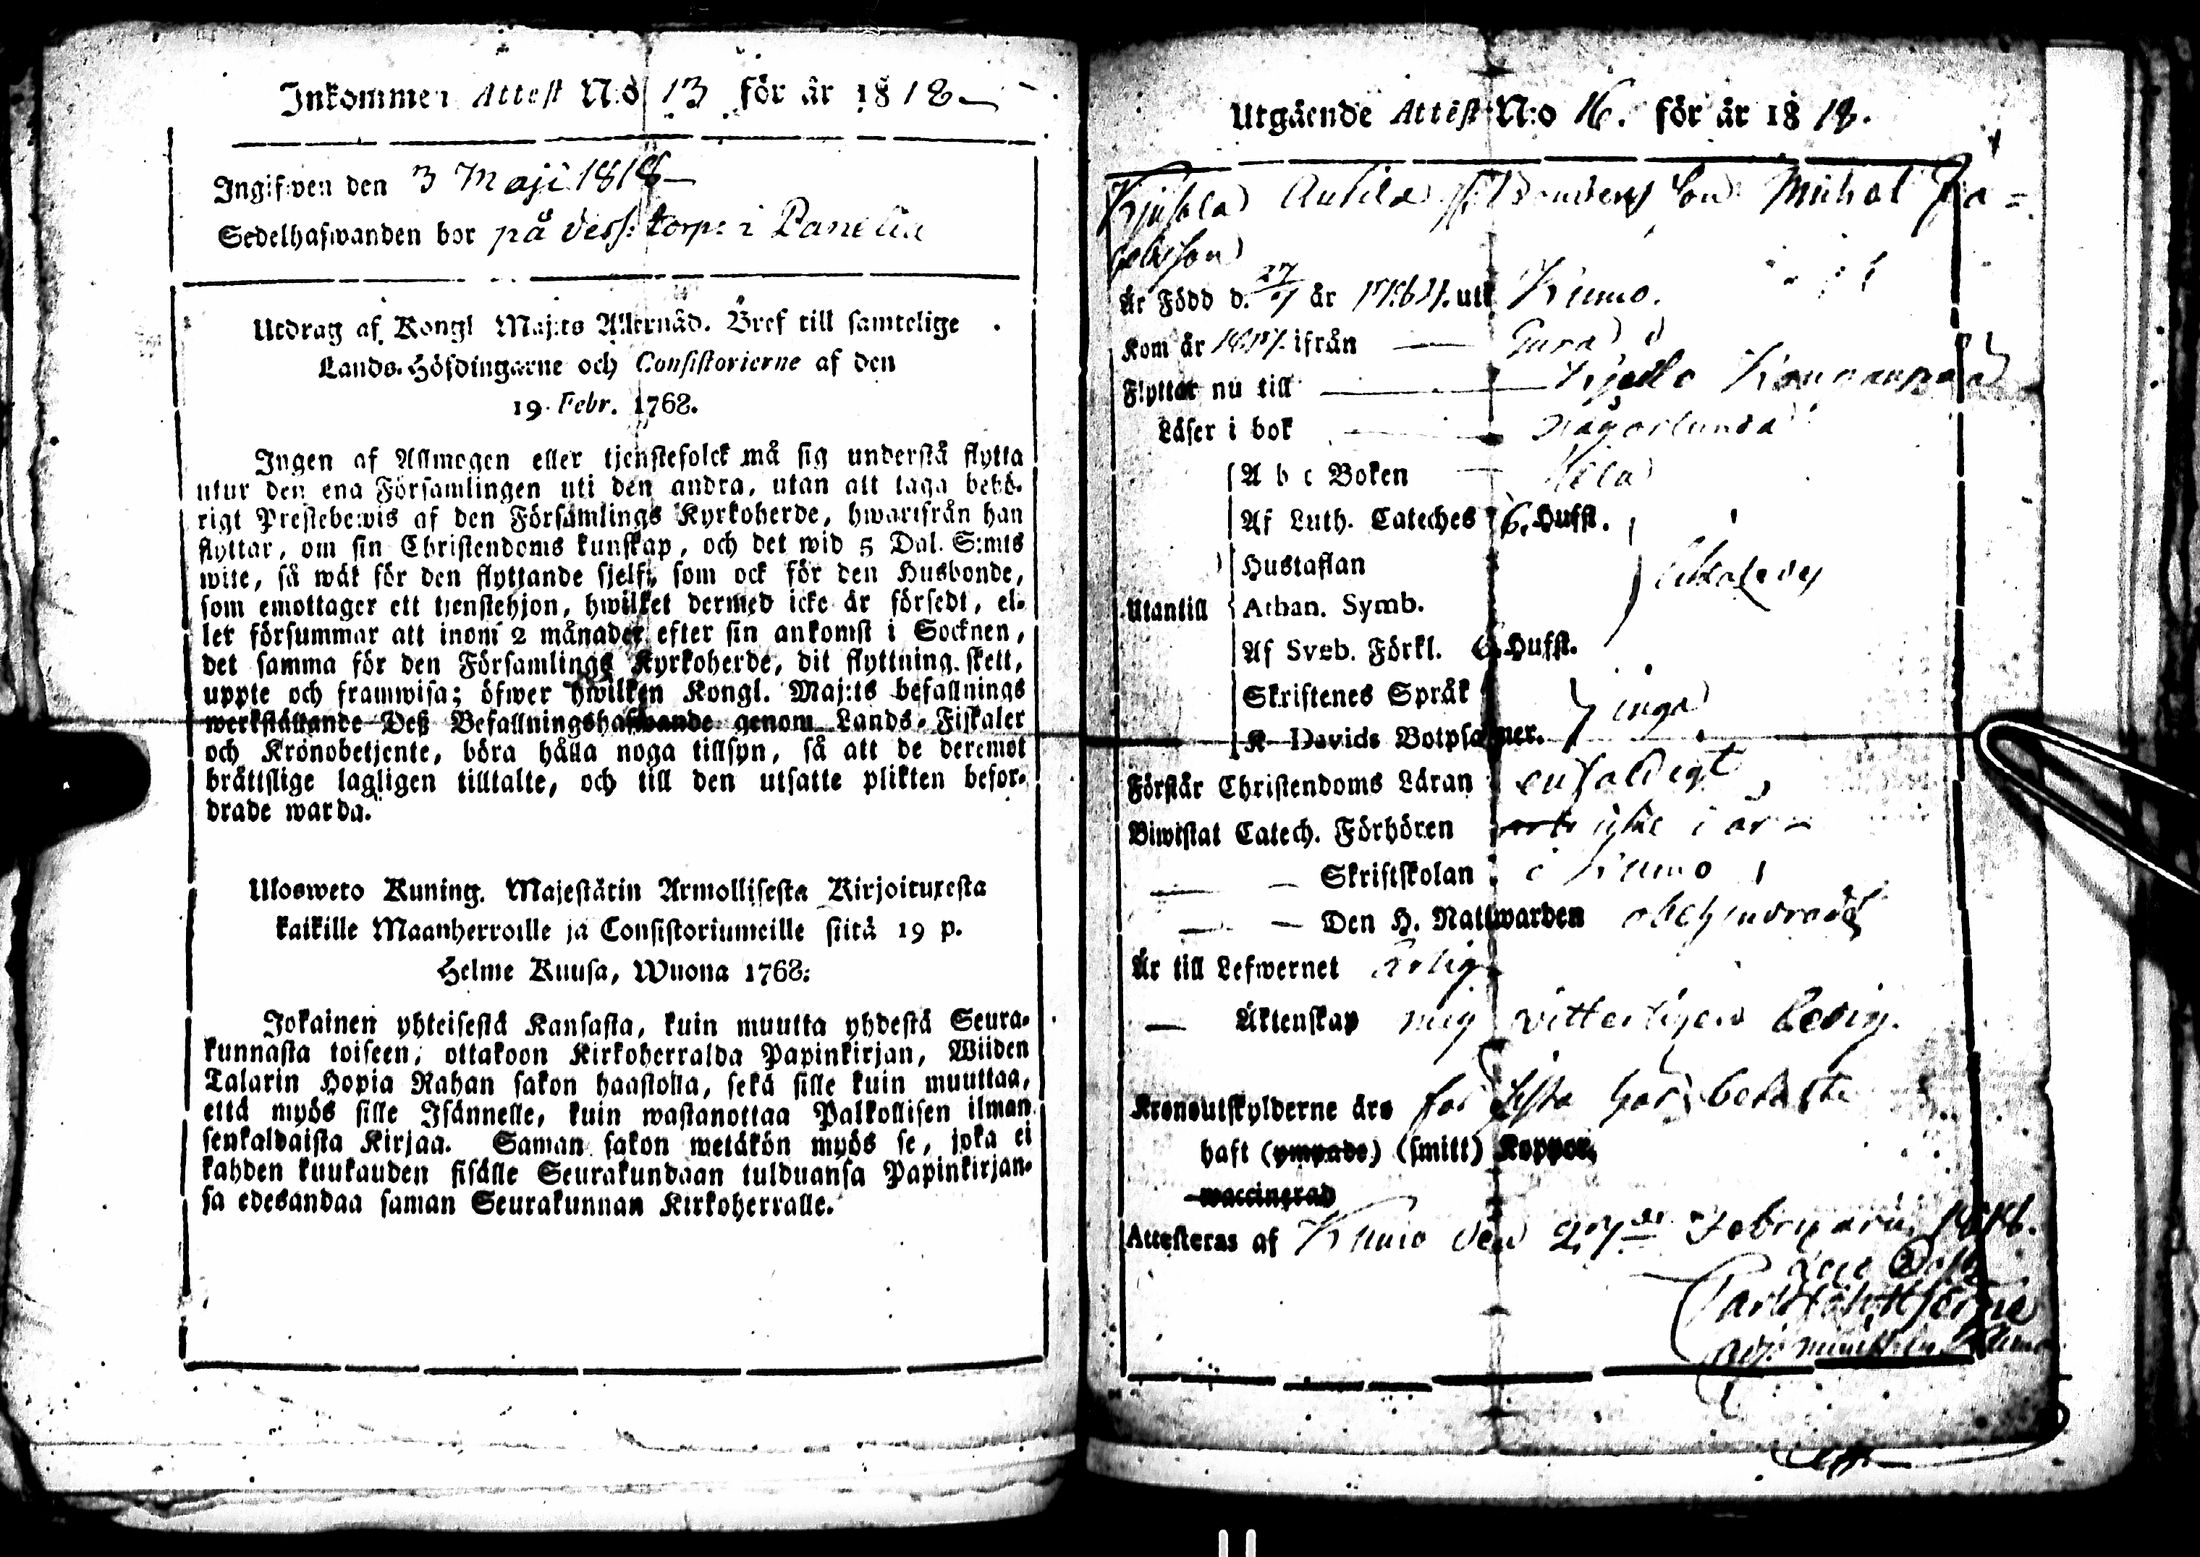 Inkommen Attest N:o 13 för år 1818
Ingifwen den 3 Maji 1818
Sedelhafwanden bor på dess torp i Panelia
Utdrag af Kongl Maj:ts Allernåd. Bref till samtelige
Lands-Höfdingarne och Consistorierne af den
19 Febr. 1768.
Ingen af Allmogen eller tjenstefolck må sig understå flytta
utur den ena Församlingen uti den andra, utan att taga behö-
rigt Prestebewis af den Församlings Kyrkoherde, hwartfrån han
flyttar, om sin Christendoms kunskap, och det wid 5 Dal. S:mts
wite, så wäl för den flyttande sjelf, som ock för den Husbonde,
som emottager ett tjenstehjon, hwilket dermed icke är försedt, el-
ler försummar att inom 2 månader efter sin ankomst i Socknen,
det samma för den Församlings Kyrkoherde, dit flyttning skett,
uppte och framwisa; öfwer hwilken Kongl. Maj:ts befallnings
werkställande Deß Befallningshafwande genom Lands-Fiskaler
och Kronobetjente, böra hålla noga tillsyn, så att de deremot
bråttslige lagligen tilltalte, och till den utsatte plikten befor-
drade warda.
Ulosweto Kuning. Majestätin Armollisesta Kirjoituxesta
kaikille Maanherroille ja Consistoriumeille siitä 19 p.
Helme Kuusa, Wuona 1768:
Jokainen yhteisestä Kansasta, kuin muutta yhdestä Seura-
kunnasta toiseen, ottakoon Kirkoherralda Papinkirjan, Wiiden
Talarin Hopia Rahan sakon haastolla, sekä sille kuin muuttaa,
että myös sille Isännelle, kuin wastanottaa Palkollisen ilman
senkaldaista Kirjaa. Saman sakon wetäkön myös se, joka ei
kahden kuukauden sisälle Seurakundaan tulduansa Papinkirjan-
sa edesandaa saman Seurakunnan Kirkoherralle.
Utgående Attest N:o 16. för år 1818.
Michel Ja=
cobsson
Är Född d. 27 år uti Kumo.
Kom år 1817 ifrån
Flyttar nu till
Läser i bok någorlunda
A b c Boken Hela
Af Luth. Cateches 6. Hufst.
Hustaflan
Utantill Athan. Symb.
Af Sveb. Förkl. 6 Hufst.
Skriftenes Språk inga
K Davids Botpsalmer.
Förstår Christendoms Läran enfaldigt
Biwistat Catech. Förhören icke i år
Skriftskolan i Kumo
Den H. Nattwarden obehindrad
Är till Lefwernet Ärlig
Äktenskap mig vitterligen ledig.
Kronoutskylderne äro för sista år betalte
haft (ympade) (smitt) Koppor,
waccinerad
Attesteras af Kumo den 27de Februarii 1818.